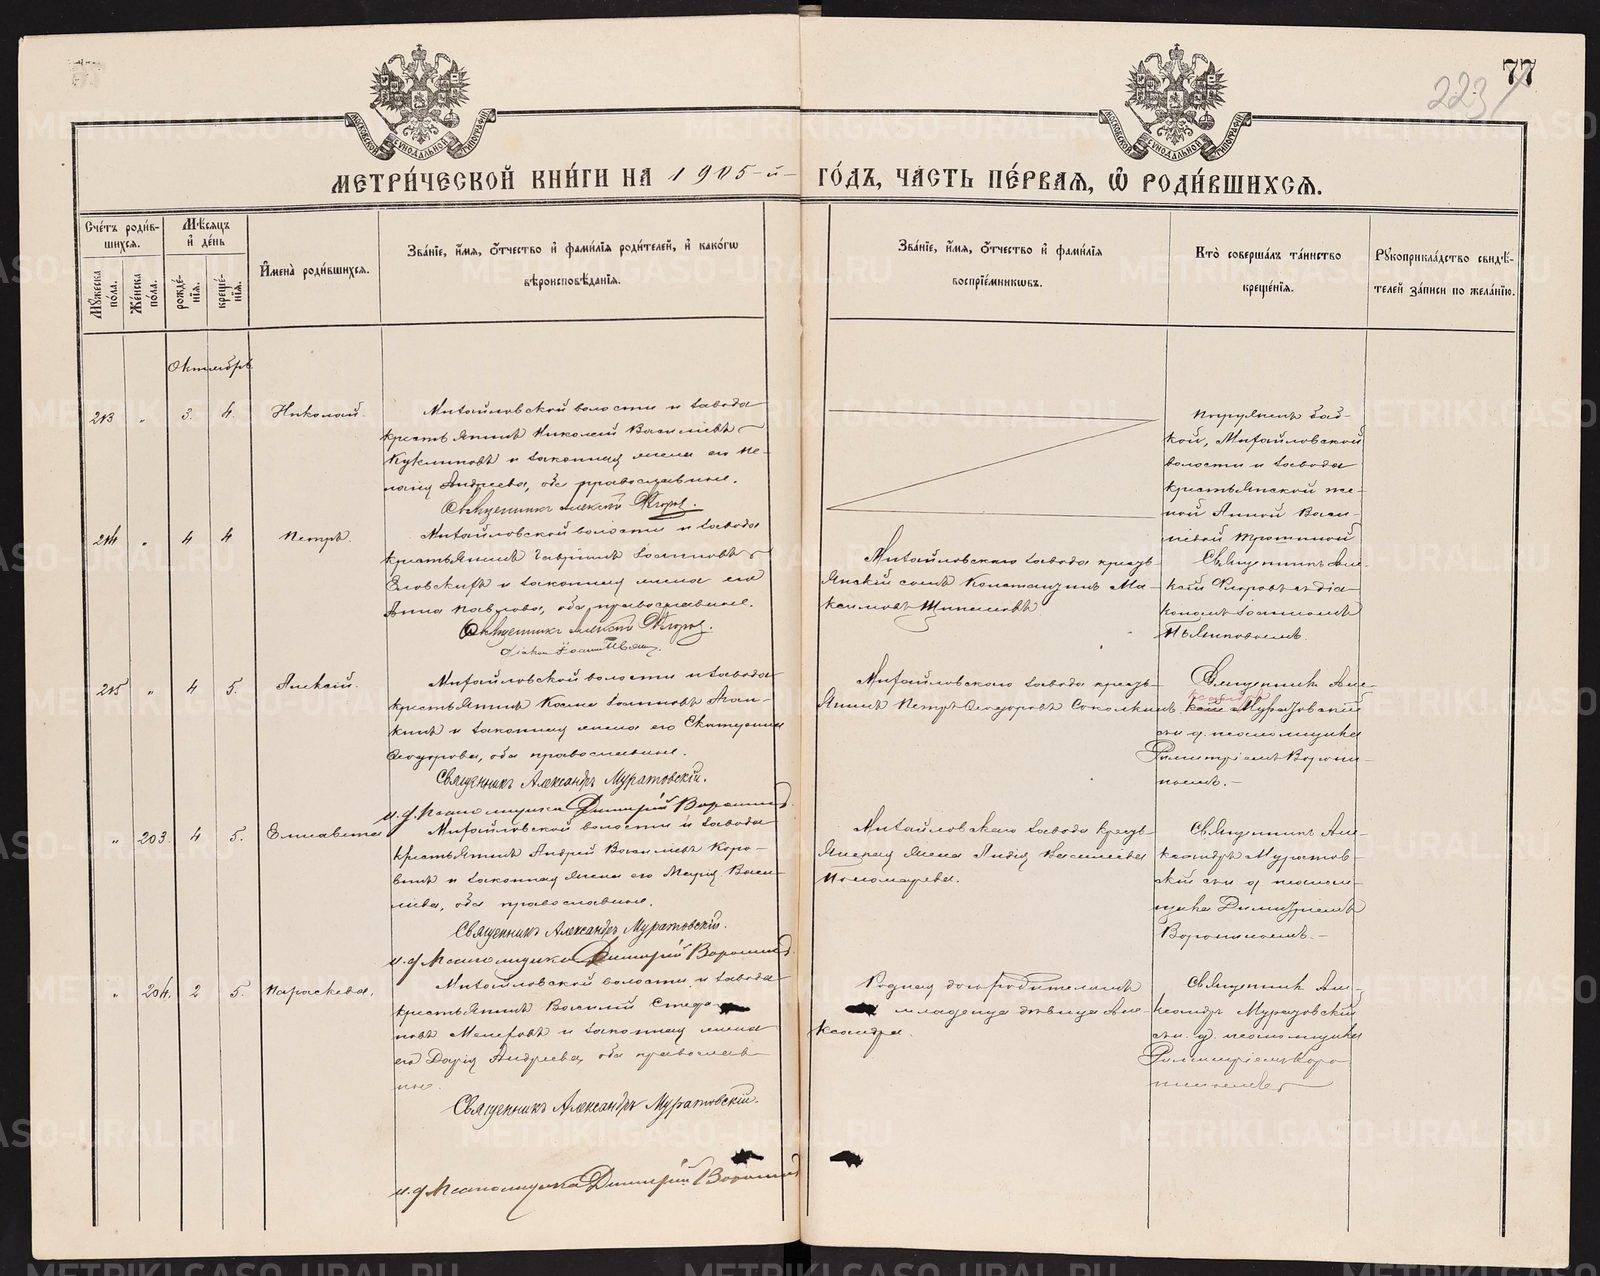 77
223
МОСКОВСКОЙ СѴНОДАЛЬНОЙ ТИПОГРАФІИ
МОСКОВСКОЙ СѴНОДАЛЬНОЙ ТИПОГРАФІИ
МЕТРИ́ЧЕСКОЙ КНИ́ГИ НА 1905-й- ГО́ДЪ, ЧА́СТЬ ПЕ́РВАѦ, Ѡ҆ РОДИ́ВШИХСѦ.
Сче́тъ роди́в-
шихсѧ.
Мѣ́сѧцъ
и҆ де́нь
Мꙋ́жеска
по́ла.
Же́нска
по́ла.
рожде́-
нїѧ.
креще́-
нїѧ.
И҆мена̀ роди́вшихсѧ.
Зва́нїе, и҆́мѧ, ѻ҆́тчество и҆ фами́лїѧ роди́телей, и҆ како́гѡ
вѣроисповѣ́данїѧ.
Зва́нїе, и҆́мѧ, ѻ҆́тчество и҆ фами́лїѧ
воспрїе́мникѡвъ.
Кто̀ соверша́лъ та́инство
креще́нїѧ.
Рꙋкоприкла́дство свидѣ́-
телей за́писи по жела́нїю.
Октябрь
213 „ 3. 4. Николай.
Михайловской волости и завода
крестьянинъ Николай Васильевъ
Куклиновъ и законная жена его Пе-
лагия Андреева, оба православные.
Священникъ Алексій Флоровъ.
Погружен баб-
кой, Михайловской
волости и завода
крестьянской же-
ной Анной Васи-
льевой
214 „ 4 4 Петръ.
Михайловской волости и завода
крестьянинъ Гавріилъ Іоанновъ
Еловскихъ и законная жена его
Анна Павлова, оба православные.
Священникъ Алексій Флоровъ.
Діаконъ Іоаннъ
Михайловскаго завода кресть-
янскій сынъ Константинъ Ма-
ксимовъ Щипановъ
Священникъ Але-
ксій Флоровъ съ діа-
кономъ Іоанномъ
215 „ 4 5. Алексій.
Михайловской волости и завода
крестьянинъ Косма Іоанновъ
и законная жена его Екатерина
Ѳеодорова, оба православные.
Священникъ Александръ Муратовскій.
и. д. Псаломщика Димитрій Воронинъ
Михайловскаго завода кресть-
янинъ Петръ Ѳеодоровъ Соколкинъ
Священникъ Але-
ксандръ
ксій Муратовскій
съ и д. псаломщика
Димитріемъ Ворони-
нымъ.-
„ 203. 4 5. Елисавета
Михайловской волости и завода
крестьянинъ Андрей Васильевъ Коро-
винъ и законная жена его Марія Васи-
льева, оба православные.
Священникъ Александръ Муратовскій.
и. д. Псаломщика Димитрій Воронинъ
Михайловскаго завода кресть-
янская жена Лидія Васильева
Пономарева.
Священникъ Але-
ксандръ Муратов-
скій съ и д псалом-
щика Димитріемъ
Воронинымъ.-
„ 204. 2 5. Параскева.
Михайловской волости и завода
крестьянинъ Василій Стефа-
новъ Мелеховъ и законная жена
его Дарія Андреева, оба православ-
ные.
Священникъ Александръ Муратовскій.
и. д Псаломщика Димитрій Воронинъ
Родная дочь родителямъ
младенца дѣвица Але-
ксандра.
Священникъ Але-
ксандръ Муратовскій
съ и. д. псаломщика
Димитріемъ Воро-
нинымъ